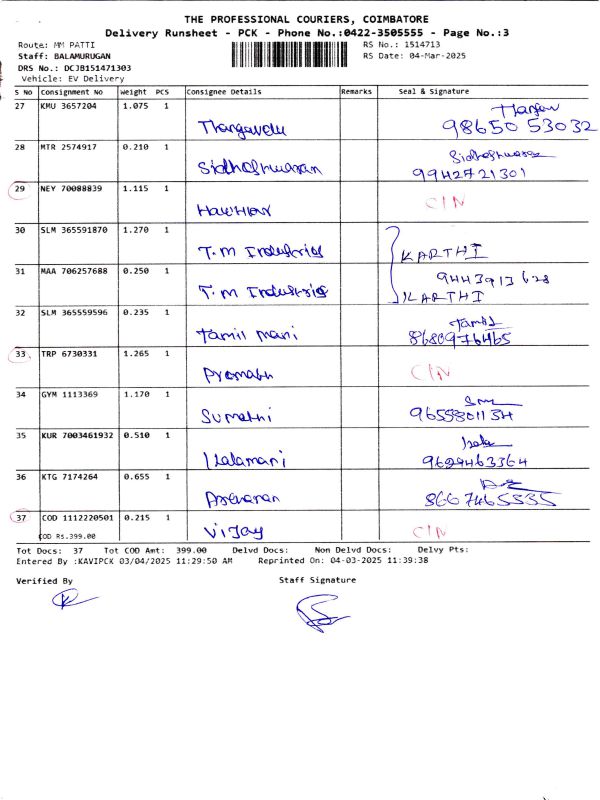 THE PROFESSIONAL COURIERS, COIMBATORE
Delivery Runsheet - PCK - Phone No.:0422-3505555 - Page No.:3
Route: MM PATTI RS No.: 1514713
Staff: BALAMURUGAN RS Date: 04-Mar-2025
DRS No.: DCJB151471303
Vehicle: EV Delivery
S No Consignment No Weight PCS Consignee Details Remarks Seal & Signature
27 KMU 3657204 1.075 1 Thangavelu
98650 53032
28 MTR 2574917 0.210 1 Sidheshwaran Sidheshwaran
9942721301
29 NEY 70088839 1.115 1 C/N
30 SLM 365591870 1.270 1 T.M Industries KARTHI
31 MAA 706257688 0.250 1 T.M Industries 9443913628
KARTHI
32 SLM 365559596 0.235 1 Tamil mani Tamil
8680976465
33 TRP 6730331 1.265 1 C/N
34 GYM 1113369 1.170 1 Sumathi
35 KUR 7003461932 0.510 1 Kalamani
9629463364
36 KTG 7174264 0.655 1
8667465535
37 COD 1112220501 0.215 1 Vijay C/N
COD RS.399.00
Tot Docs: 37 Tot COD Amt: 399.00 Delvd Docs: Non Delvd Docs: Delvy Pts:
Entered By :KAVIPCK 03/04/2025 11:29:50 AM Reprinted On: 04-03-2025 11:39:38
Verified By Staff Signature